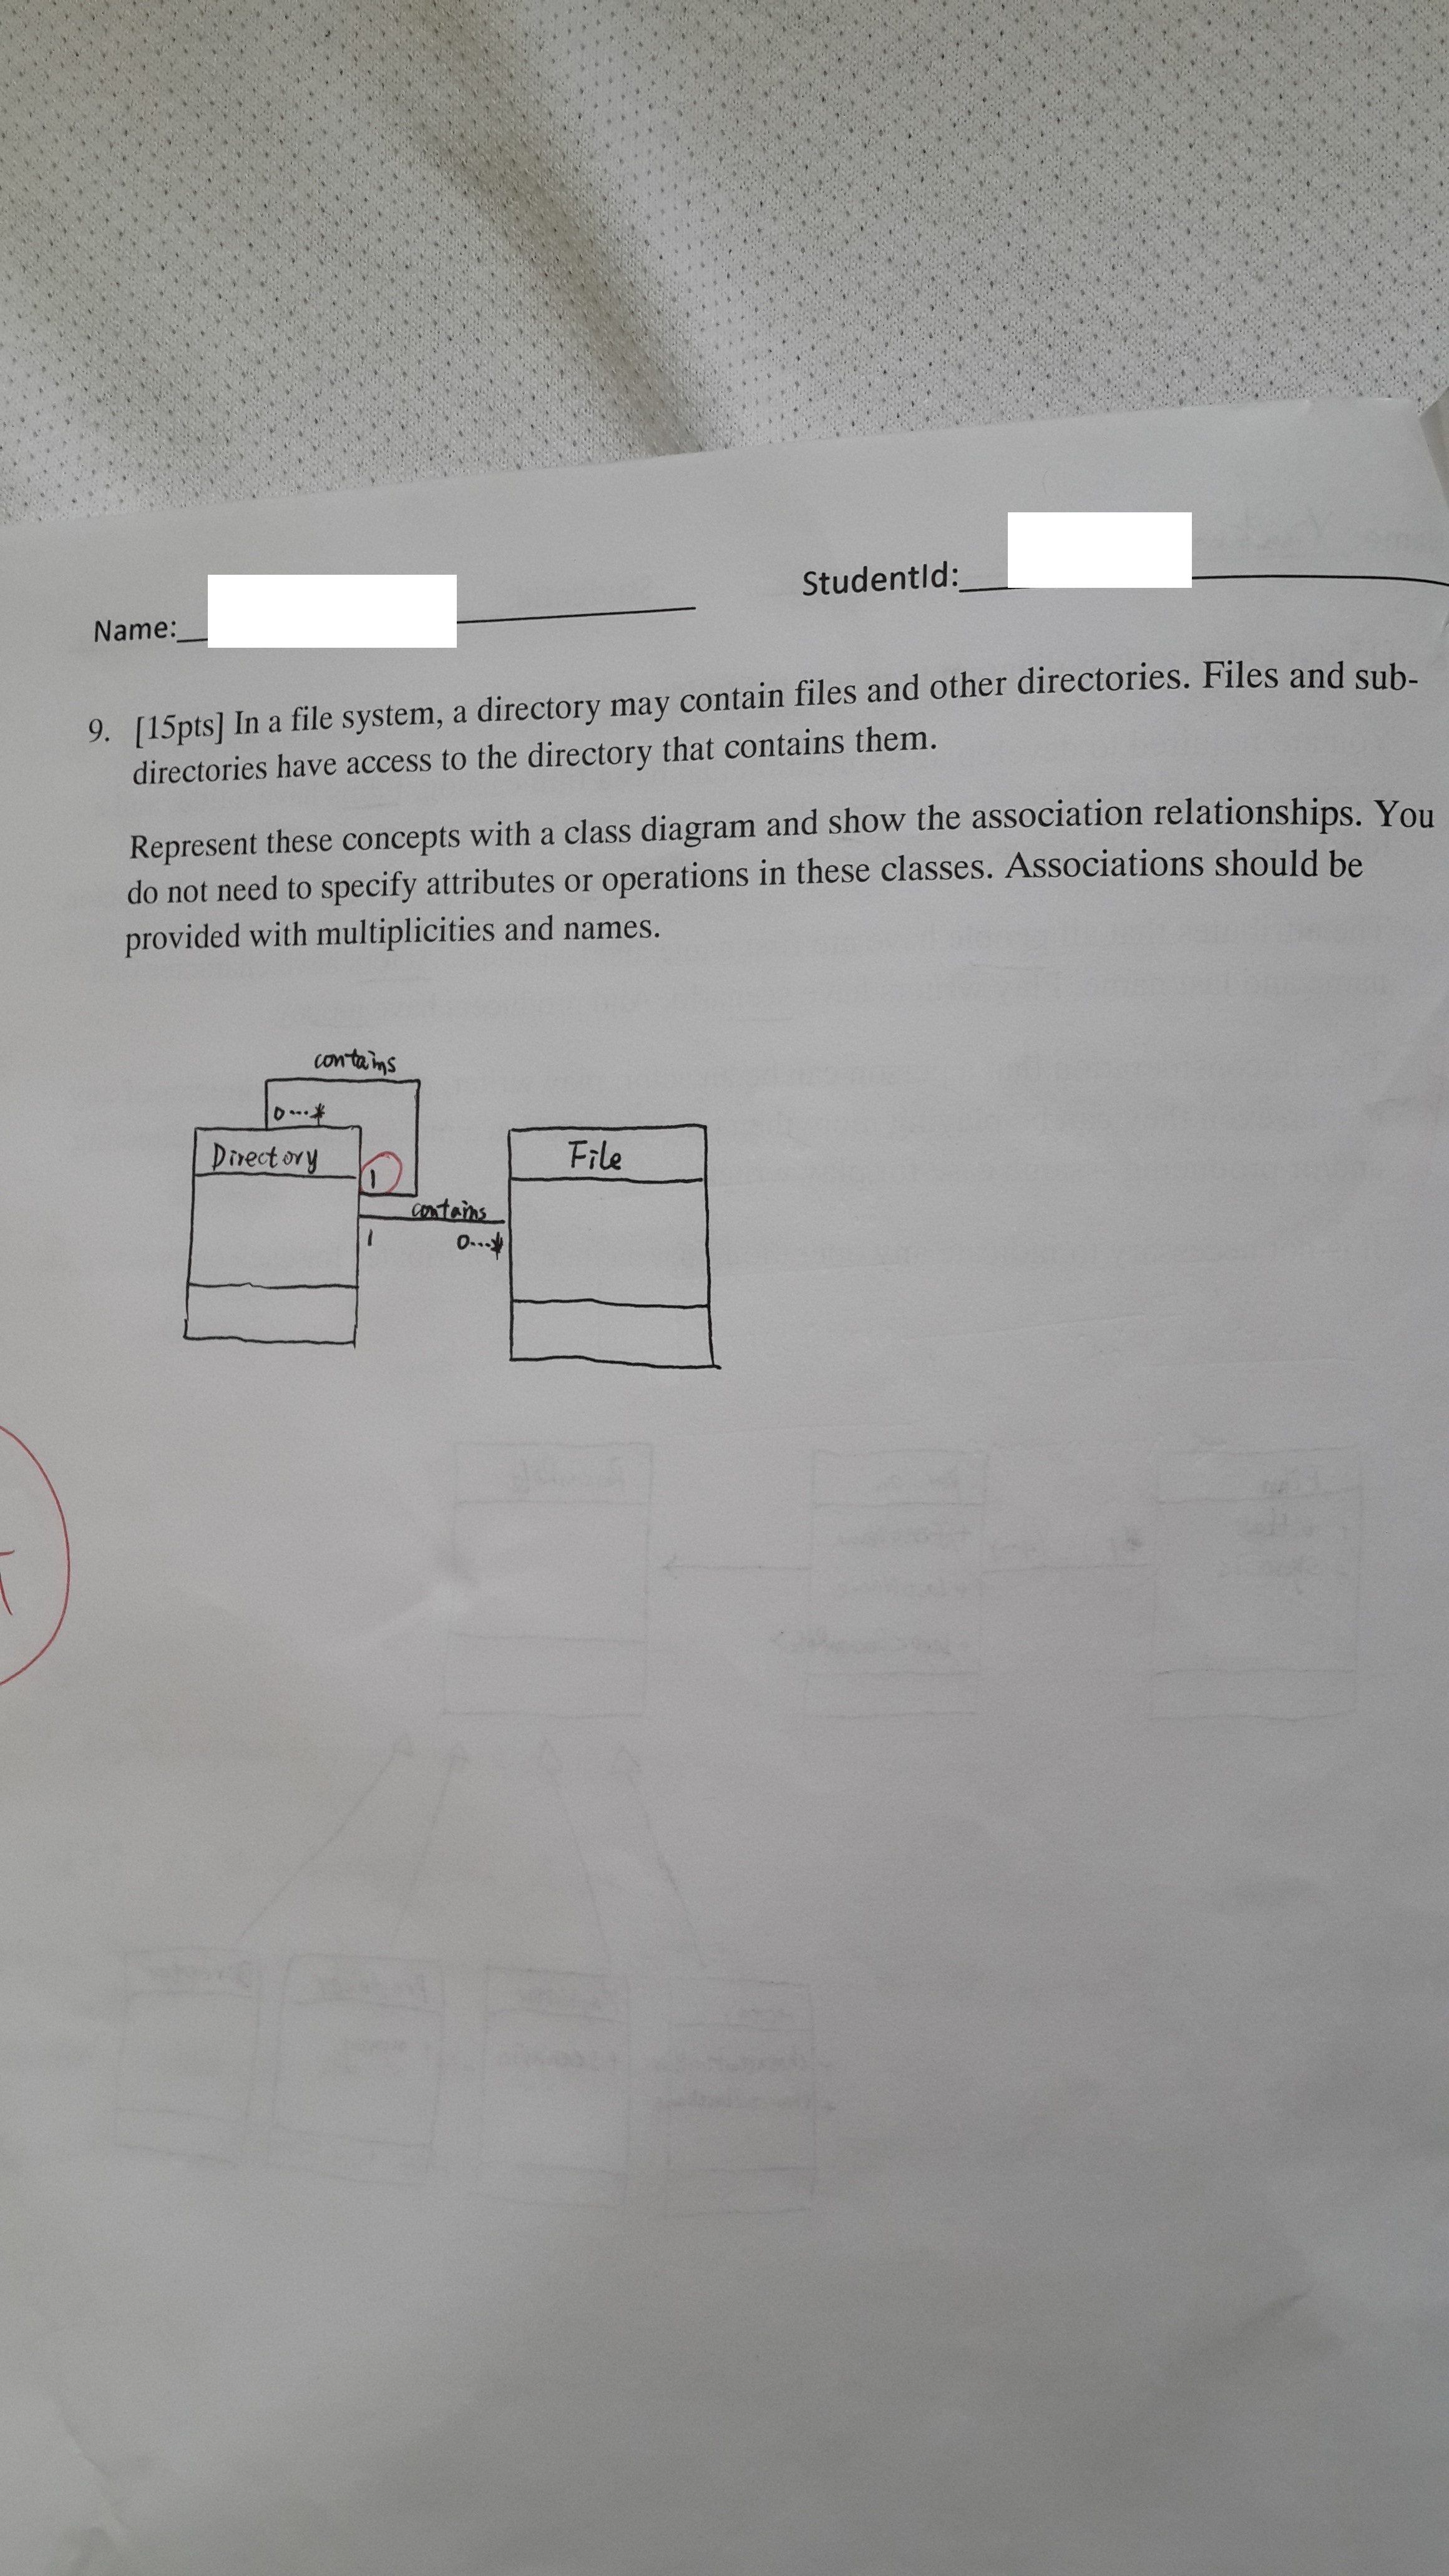 Name:
StudentId:
9. [15pts] In a file system, a directory may contain files and other directories. Files and sub-
directories have access to the directory that contains them.
Represent these concepts with a class diagram and show the association relationships. You
do not need to specify attributes or operations in these classes. Associations should be
provided with multiplicities and names.
contains
0...*
Directory
1
File
contains
1
0...*